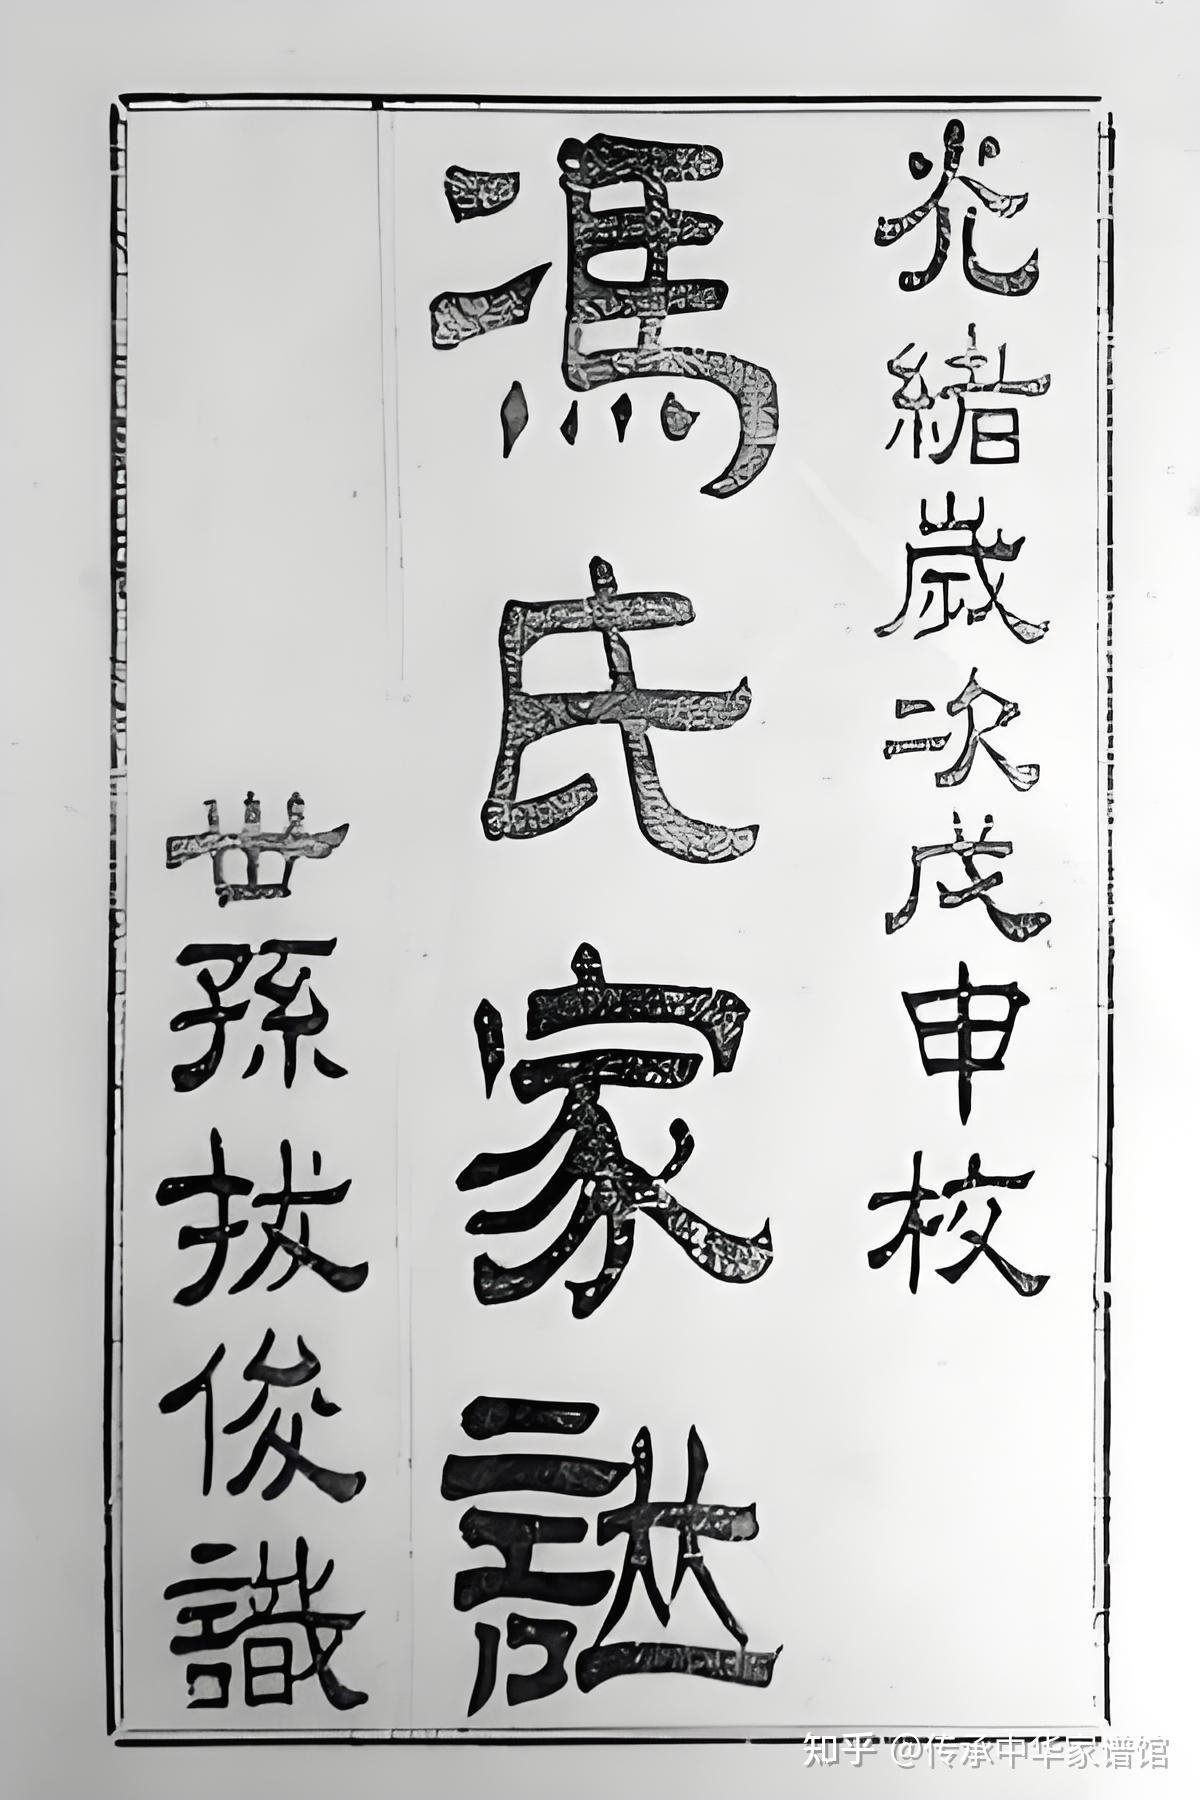 光緒歲次戊申校
馮氏家譜
世孫拔俊識
知乎 @传承中华家谱馆